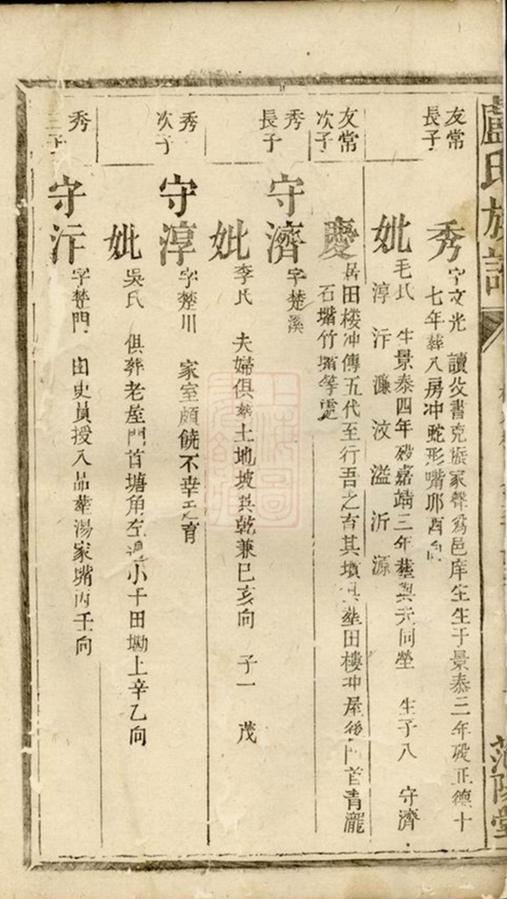 盧氏族譜
范陽堂
友常
長子
秀
字文光 讀父書克振家聲為邑庠生生于景泰三年歿正德十
七年葬八房冲蛇形嘴卯酉向
妣
毛氏 生景泰四年歿嘉靖三年葬與夫同塋 生子八 守濟
淳 汴 濂 汶 溢 沂 源
友常
次子
慶
居田樓冲傳五代至行吾乏育其墳葬田樓冲屋後門首青瀧
石嘴竹壩等處
秀
長子
守濟
字楚溪
妣
李氏 夫婦俱葬土地坡其乾兼巳亥向 子一 茂
秀
次子
守淳
字楚川 家室頗饒不幸乏育
妣
吳氏 俱葬老屋門首塘角左邊小干田墈上辛乙向
秀
三子
守汴
字楚門 由史員授入品葬湯家嘴丙壬向